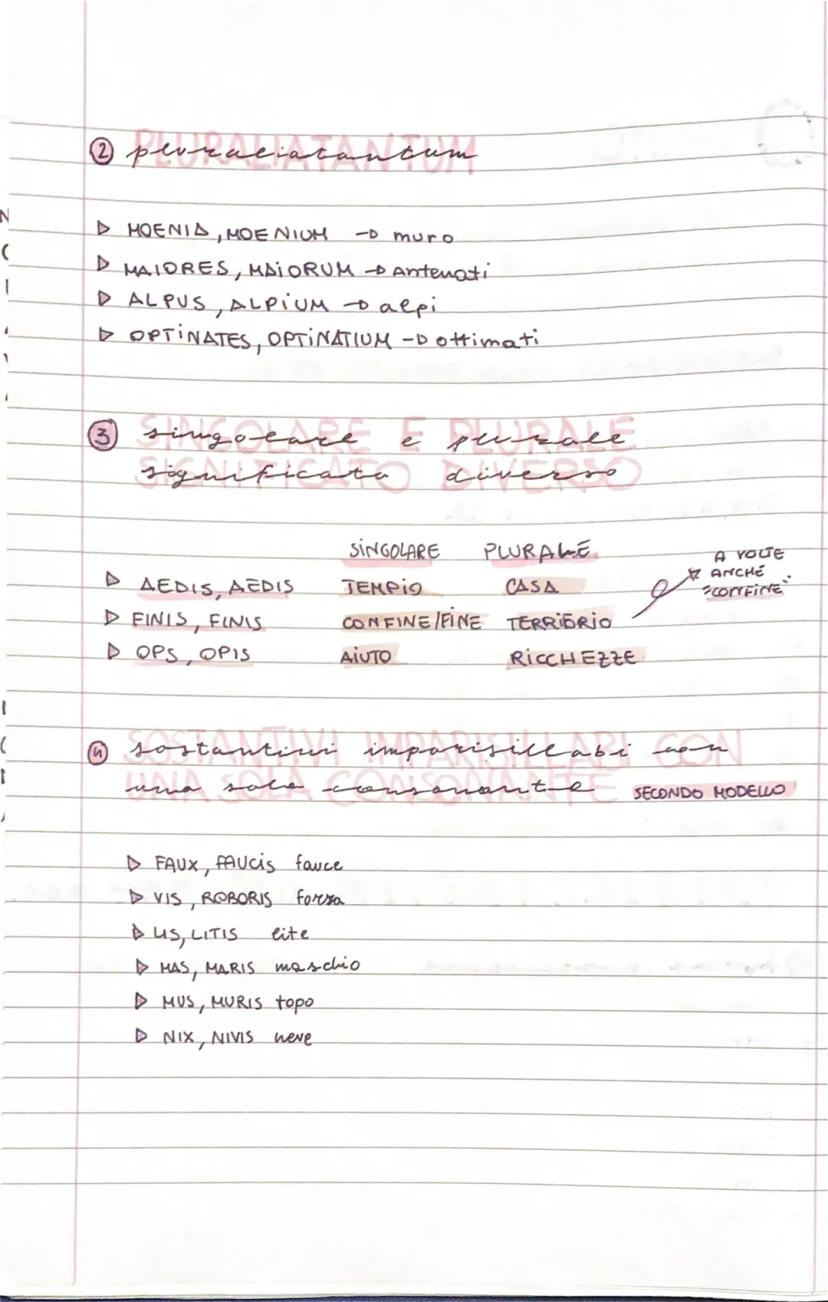 ② pluraliatantum
PLURALIATANTUM
▷ MOENIA, MOENIUM → muro
▷ MAIORES, MAIORUM → Antenati
▷ ALPUS, ALPIUM → alpi
▷ OPTINATES, OPTINATIUM → ottimati
③ singolare e plurale
SINGOLARE E PLURALE
significato diverso
SIGNIFICATO DIVERSO
SINGOLARE PLURALE
▷ AEDIS, AEDIS TEMPIO CASA
▷ FINIS, FINIS CONFINE/FINE TERRITORIO
A VOLTE
ANCHE
"CONFINE"
▷ OPS, OPIS AIUTO RICCHEZZE
④ sostantivi imparisillabi con
SOSTANTIVI IMPARISILLABI CON
una sola consonante SECONDO MODELLO
UNA SOLA CONSONANTE
▷ FAUX, FAUCIS fauce
▷ VIS, ROBORIS forza
▷ LIS, LITIS lite
▷ MAS, MARIS maschio
▷ MUS, MURIS topo
▷ NIX, NIVIS neve